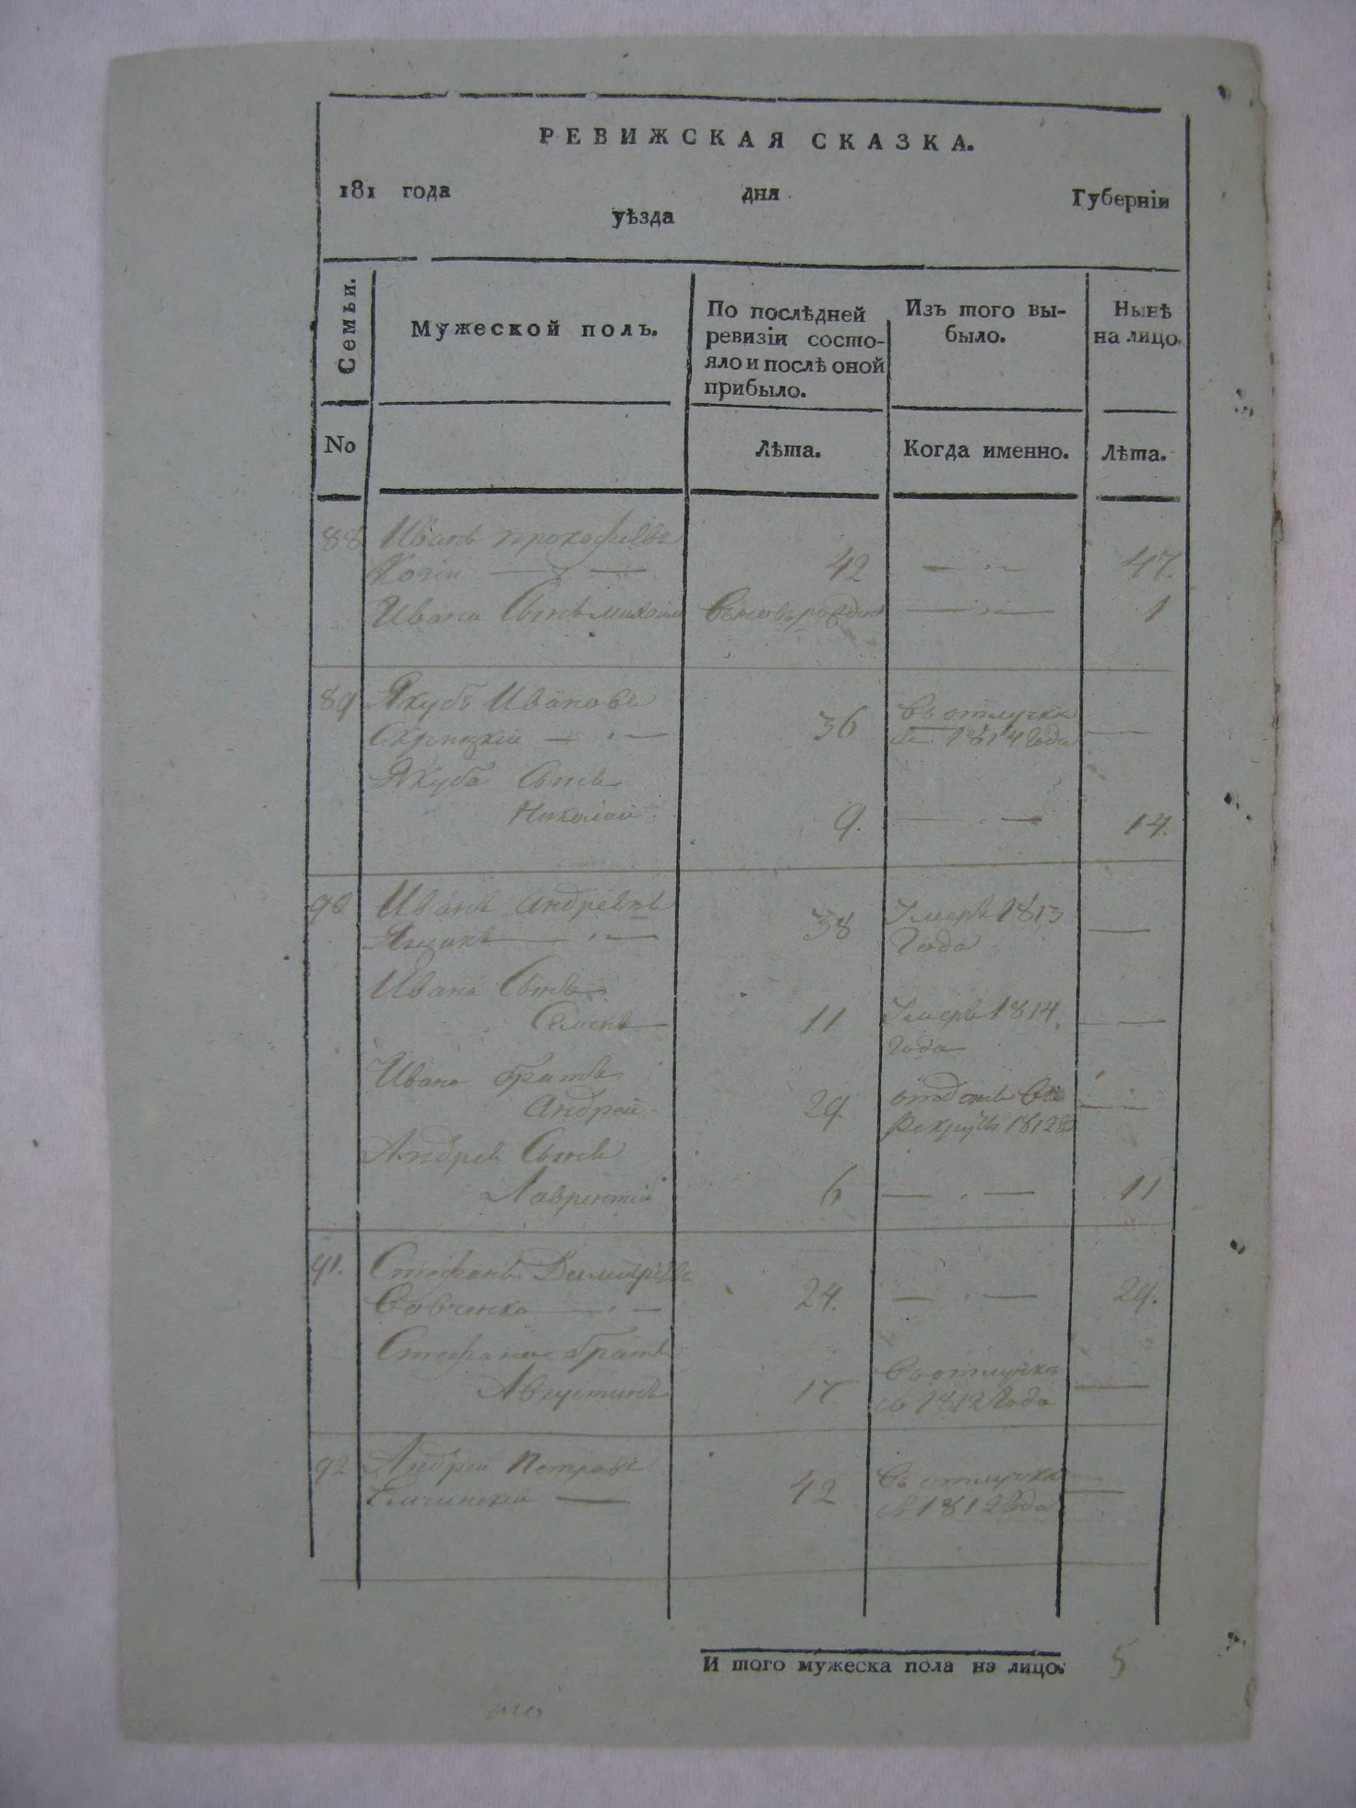 РЕВИЖСКАЯ СКАЗКА.
181 года дня Губерніи
уѣзда
Семьи.
Мужеской полъ.
По послѣдней ревизіи состо-
яло и послѣ оной
прибыло.
Изъ того вы-
было.
Нынѣ
на лицо.
No
Лѣта.
Когда именно.
Лѣта.
88 Иванъ Прокофьевъ
42 47.
Ивана Сынъ 1
89 Якубъ Ивановъ
36 Въ отлучки
1814 Года
Якуба Сынъ
Николай 9. 14.
90 Иванъ Андреевъ
38 Умеръ 1813
Года
Ивана Сынъ
Семенъ 11 Умеръ 1814.
Года
Ивана братъ
Андрей 29. отданъ въ
Рекруты 1812
Андрея Сынъ
Лаврентій 6 11
91. Стефанъ Димитріевъ
Совченко 24. 29.
Стефана братъ
Августинъ 17. Въ отлучки
съ 1812 Года
92 Андрей Петровъ
42 Въ отлучки
съ 1812 Года
И того мужеска пола на лицо. 5